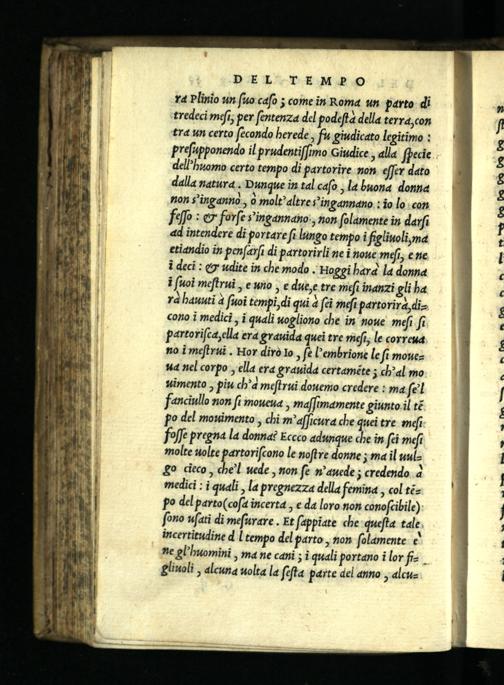 DEL TEMPO
ra Plinio un ſuo caſo ; come in Roma un parto di
tredeci meſi, per ſentenza del podeſtà della terra, con
tra un certo ſecondo herede, fu giudicato legitimo :
preſupponendo il prudentiſſimo Giudice, alla ſpecie
dell'huomo certo tempo di partorire non eſſer dato
dalla natura . Dunque in tal caſo, la buona donna
non s'ingannò, ò molt'altre s'ingannano : io lo con
feſſo : & forſe s'ingannano, non ſolamente in darſi
ad intendere di portare ſi lungo tempo i figliuoli, ma
etiandio in penſarſi di partorirli ne i noue meſi, e ne
i deci : & udite in che modo . Hoggi harà la donna
i ſuoi meſtrui, e uno, e due, e tre meſi inanzi gli ha
rà hauuti à ſuoi tempi, di quì à ſei meſi partorirà, di=
cono i medici, i quali uogliono che in noue meſi ſi
partoriſca, ella era grauida quei tre meſi, le correua
no i meſtrui . Hor dirò Io, ſe l'embrione le ſi moue=
ua nel corpo, ella era grauida certamēte ; ch'al mo
uimento, piu ch'à meſtrui douemo credere : ma ſe'l
fanciullo non ſi moueua, maſſimamente giunto il tē
po del mouimento, chi m'aſſicura che quei tre meſi
foſſe pregna la donna? Eccco adunque che in ſei meſi
molte uolte partoriſcono le noſtre donne ; ma il uul=
go cieco, che'l uede, non ſe n'auede ; credendo à
medici : i quali, la pregnezza della femina, col tē=
po del parto (coſa incerta, e da loro non conoſcibile)
ſono uſati di meſurare . Et ſappiate che queſta tale
incertitudine d l tempo del parto, non ſolamente è
ne gl'huomini, ma ne cani ; i quali portano i lor fi=
gliuoli, alcuna uolta la ſeſta parte del anno, alcu=